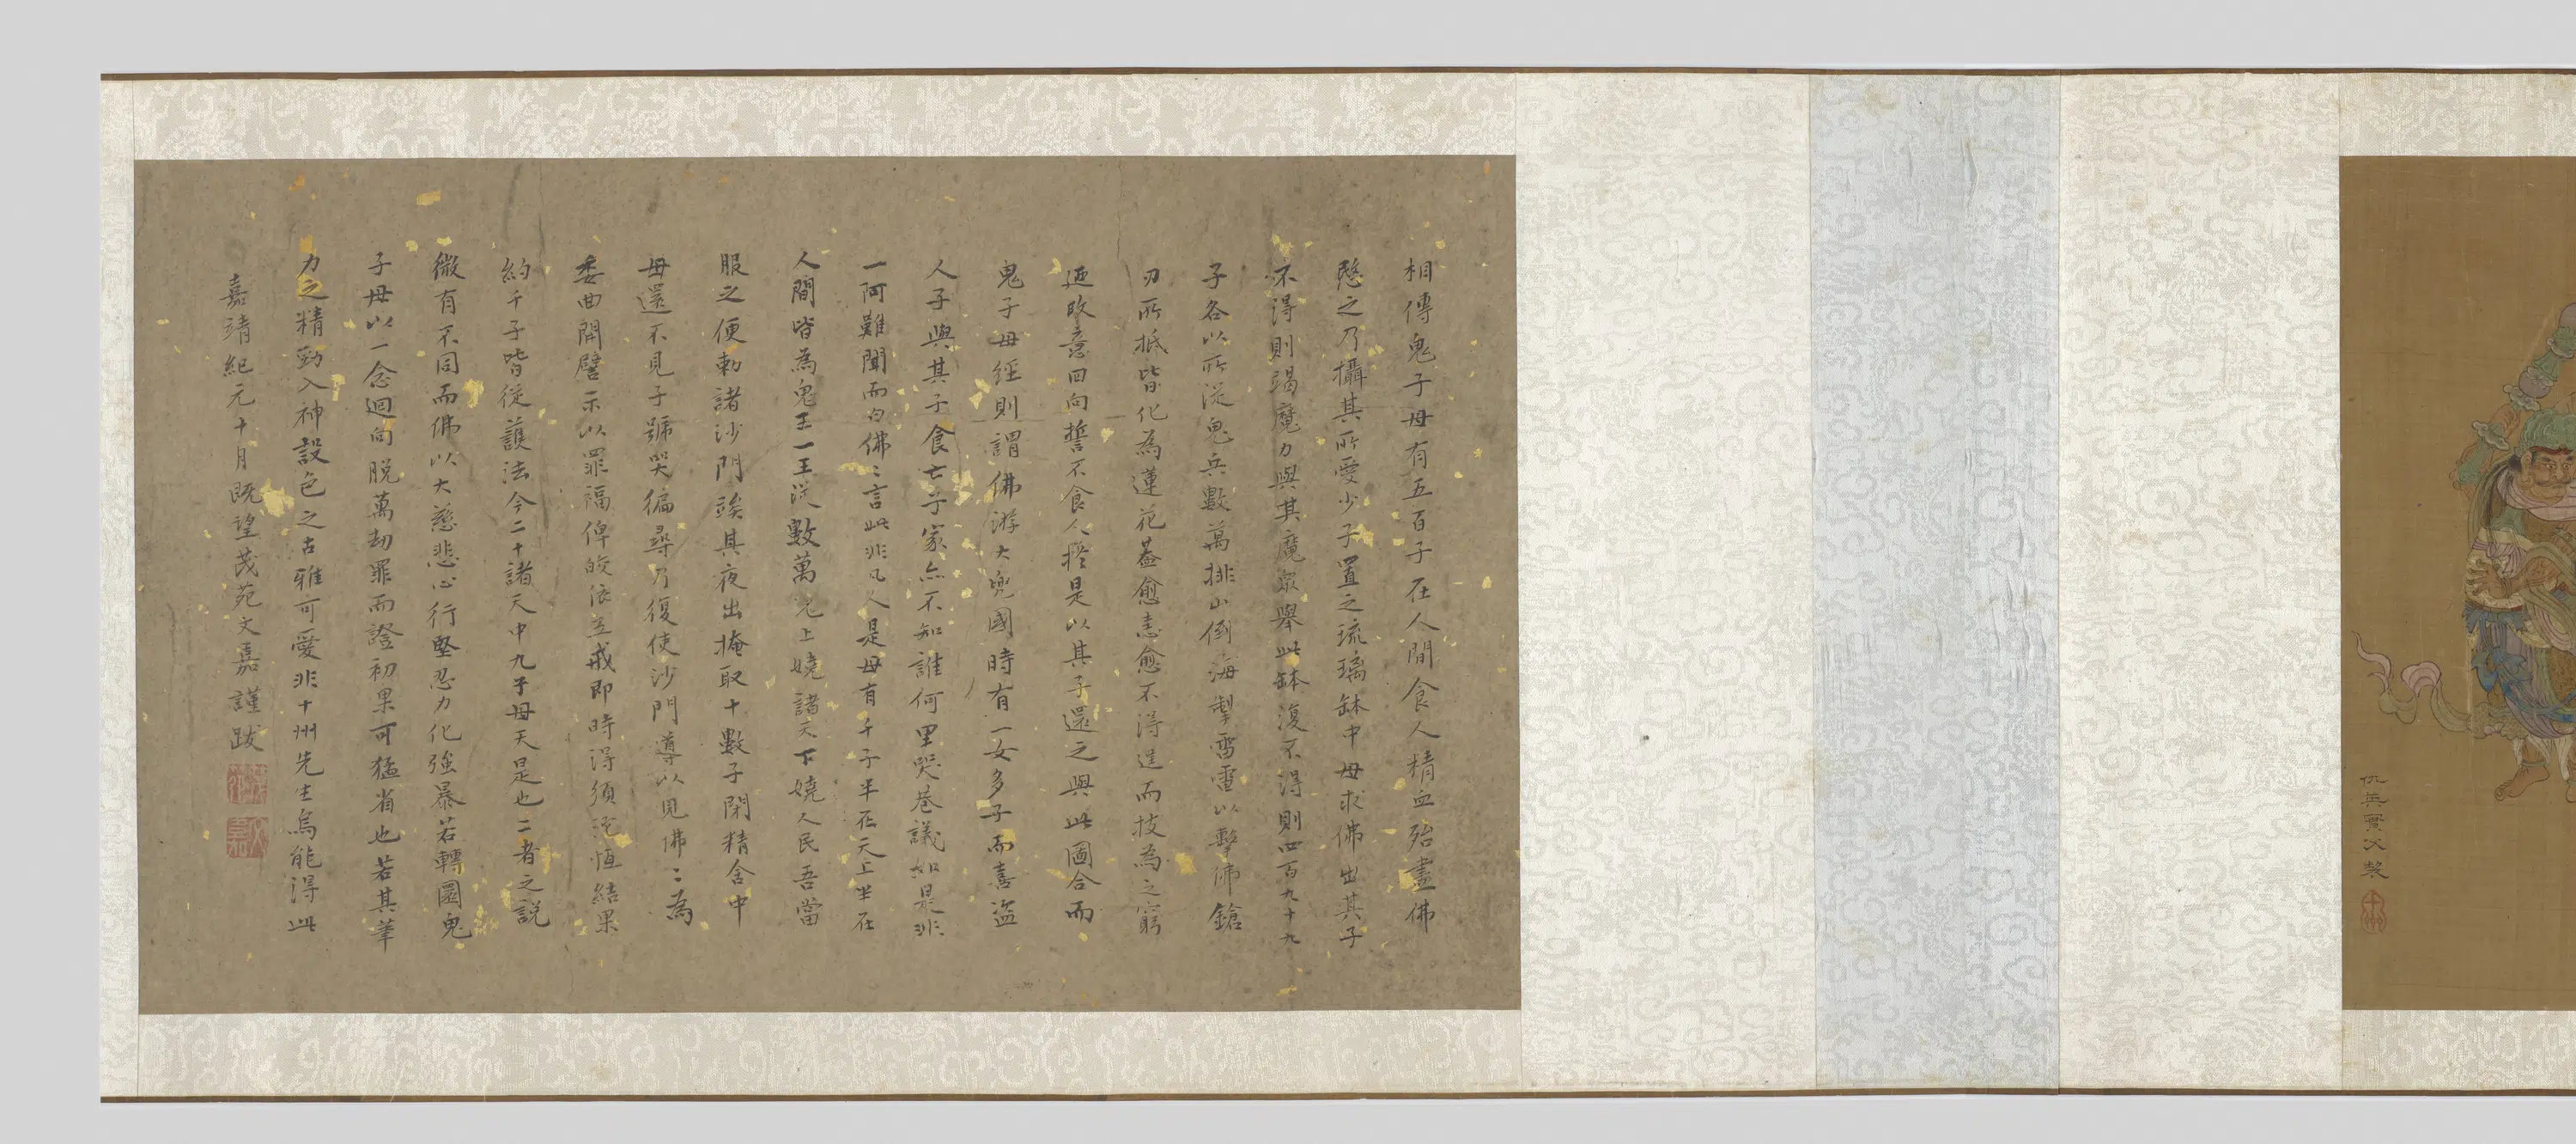 仇英實父製
十州
相傳鬼子母有五百子在人間食人精血殆盡佛
愍之乃攝其所愛少子置之琉璃缽中母求佛出其子
不得則竭魔力與其魔眾舉此缽復不得則四百九十九
子各以所從鬼兵數萬排山倒海掣雷電以擊佛鎗
刃所抵皆化為蓮花葢愈恚愈不得逞而技為之窮
廼改意回向誓不食人 是以其子還之與此圖合而
鬼子母經則謂佛游大兜國時有一女多子而喜盜
人子與其子食亡子家亦不知誰何里哭巷議如是非
一阿難聞而白佛〻言此非凡人是母有千子半在天上半在
人間皆為鬼王一王從數萬鬼上嬈諸天下嬈人民吾當
服之便勅諸沙門竢其夜出掩取十數子閉精舍中
母還不見子號哭徧尋乃復使沙門導以見佛〻為
委曲開譬示以罪福俾皈依五戒即時得須 恒結果
約千子皆從護法今二十諸天中九子母天是也二者之說
微有不同而佛以大慈悲心行堅忍力化強暴若轉圜鬼
子母以一念迴向脫萬劫罪而證初果可猛省也若其筆
力之精勁入神設色之古雅可愛非十州先生烏能得此
嘉靖紀元十月既望茂苑文嘉謹跋
文嘉